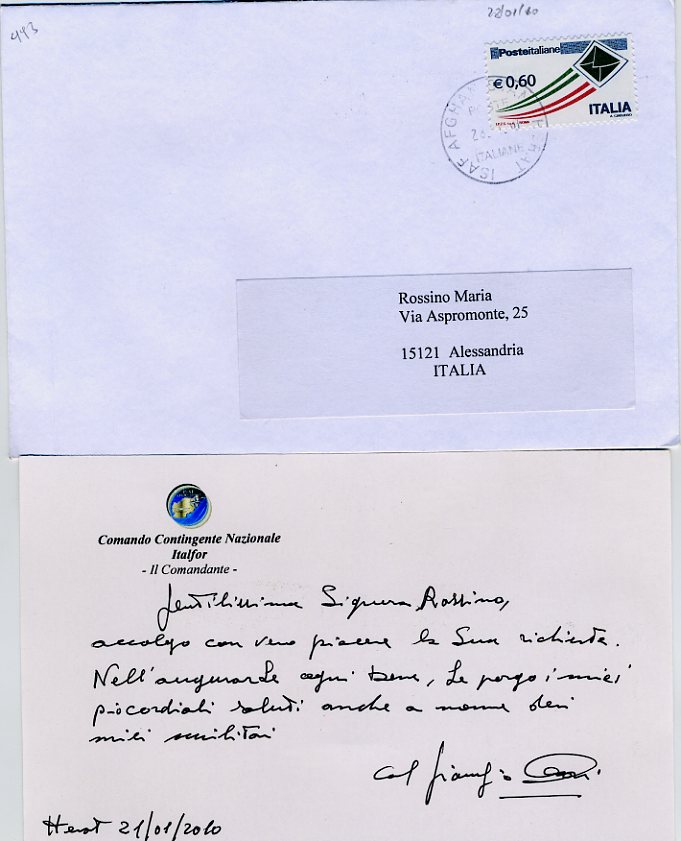 493
22/01/10
Posteitaliane
€ 0,60
ITALIA
ISAF AFGHA
ITALIANE
Rossino Maria
Via Aspromonte, 25
15121 Alessandria
ITALIA
Comando Contingente Nazionale
Italfor
- Il Comandante -
Gentilissima Signora Rossino,
accolgo con vero piacere la Sua richiesta.
Nell'augurarLe ogni bene, Le porgo i miei
più cordiali saluti anche a nome dei
miei militari
Col
Herat 21/01/2010